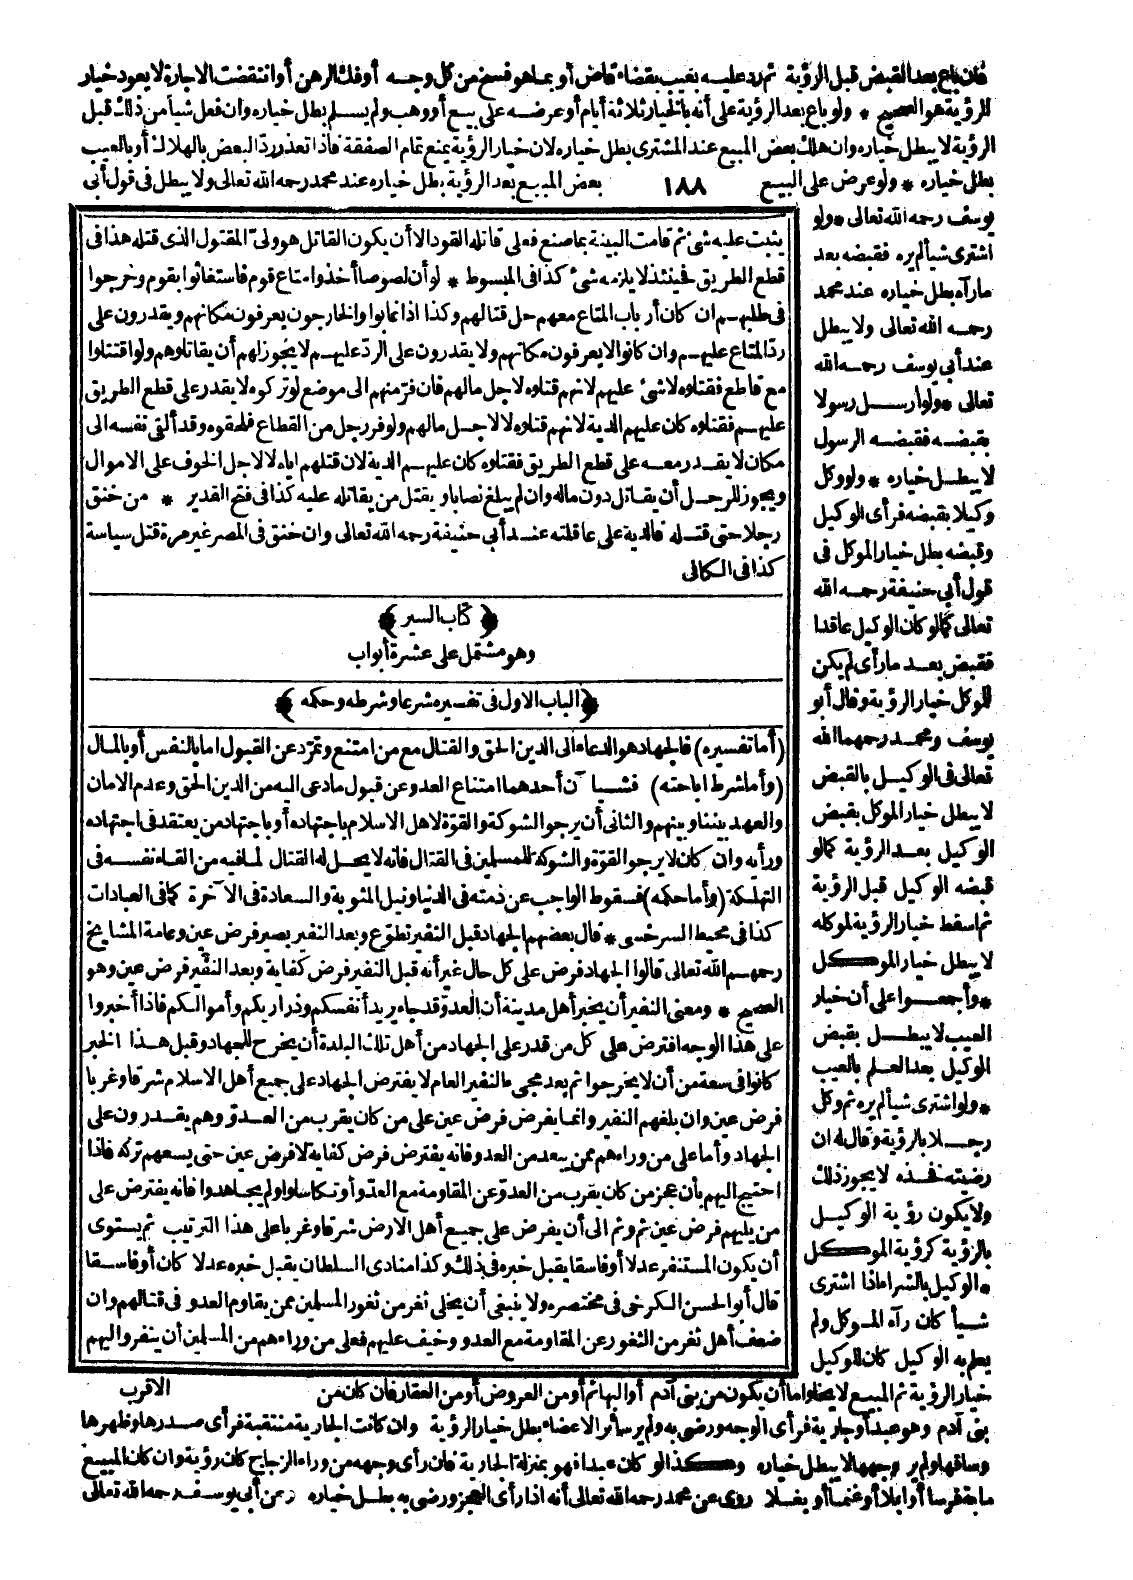 فان باع بعد القبض قبل الرؤية ثم رد عليه بعيب بقضاء قاض أو بما هو فسخ من كل وجه أو فك الرهن أو انتقضت الاجارة لا يعود خيار
الرؤية هو الصحيح * ولو باع بعد الرؤية على أنه بالخيار ثلاثة أيام أو عرضه على بيع أو وهب ولم يسلم بطل خياره وان فعل شيأ من ذلك قبل
الرؤية لا يبطل خياره وان هلك بعض المبيع عند المشترى بطل خياره لان خيار الرؤية يمنع تمام الصفقة فاذا تعذر ردّ البعض بالهلاك أو بالعيب
بطل خياره * ولو عرض على البيع ١٨٨ بعض المبيع بعد الرؤية بطل خياره عند محمد رحمه الله تعالى ولا يبطل فى قول أبى
يوسف رحمه الله تعالى * ولو
اشترى شيألم يره فقبضه بعد
مارآه بطل خياره عند محمد
رحمه الله تعالى ولا يبطل
عند أبى يوسف رحمه الله
تعالى * ولو أرسل رسولا
بقبضه فقبضه الرسول
لا يبطل خياره * ولو وكل
وكيلا بقبضه فرأى الوكيل
وقبضه بطل خيار الموكل فى
قول أبى حنيفة رحمه الله
تعالى كما لو كان الوكيل عاقدا
فقبض بعد مارأى لم يكن
للموكل خيار الرؤية وقال أبو
يوسف ومحمد رحمهما الله
تعالى فى الوكيل بالقبض
لا يبطل خيار الموكل بقبض
الوكيل بعد الرؤية كما لو
قبضه الوكيل قبل الرؤية
ثم اسقط خيار الرؤية لموكله
لا يبطل خيار الموكل
* وأجمعوا على أن خيار
العيب لا يبطل بقبض
الوكيل بعد العلم بالعيب
* ولو اشترى شيألم يره ثم وكل
رجلا بالرؤية وقال له ان
رضيته فخذه لا يجوز ذلك
ولا يكون رؤية الوكيل
بالرؤية كرؤية الموكل
* الوكيل بالشراء اذا اشترى
شيأ كان رآه الموكل ولم
يعلم به الوكيل كان للوكيل
يثبت عليه شئ ثم قامت البينة بما صنع فعلى قاتله القود الا أن يكون القاتل هو ولىّ المقتول الذى قتله هذا فى
قطع الطريق فحينئذ لا يلزمه شئ كذا فى المبسوط * لو أن لصوصا أخذوا متاع قوم فاستغاثوا بقوم وخرجوا
فى طلبهم ان كان أرباب المتاع معهم حل قتالهم وكذا اذا غابوا والخارجون يعرفون مكانهم ويقدرون على
ردّ المتاع عليهم وان كانوا لا يعرفون مكانهم ولا يقدرون على الردّ عليهم لا يجوز لهم أن يقاتلوهم ولو اقتتلوا
مع قاطع فقتلوه لا شئ عليهم لانهم قتلوه لاجل مالهم فان فرّ منهم الى موضع لو تركوه لا يقدر على قطع الطريق
عليهم فقتلوه كان عليهم الدية لانهم قتلوه لا لاجل مالهم ولو فر رجل من القطاع فلحقوه وقد ألقى نفسه الى
مكان لا يقدر معه على قطع الطريق فقتلوه كان عليهم الدية لان قتلهم اياه لا لاجل الخوف على الاموال
ويجوز للرجل أن يقاتل دون ماله وان لم يبلغ نصابا ويقتل من يقاتله عليه كذا فى فتح القدير * من خنق
رجلا حتى قتله فالدية على عاقلته عند أبى حنيفة رحمه الله تعالى وان خنق فى المصر غير مرة قتل سياسة
كذا فى الكافى
﴿ كتاب السير ﴾
وهو مشتمل على عشرة أبواب
﴿الباب الاول فى تفسيره شرعا وشرطه وحكمه ﴾
(أما تفسيره) فالجهاد هو الدعاء الى الدين الحق والقتال مع من امتنع وتمرّد عن القبول اما بالنفس أو بالمال
(وأما شرط اباحته) فشيآن أحدهما امتناع العدو عن قبول مادعى اليه من الدين الحق وعدم الامان
والعهد بيننا وبينهم والثانى أن يرجو الشوكة والقوّة لاهل الاسلام باجتهاده أو باجتهاد من يعتقد فى اجتهاده
ورأيه وان كان لا يرجو القوّة والشوكة للمسلمين فى القتال فانه لا يحل له القتال لما فيه من القاء نفسه فى
التهلكة (وأما حكمه) فسقوط الواجب عن ذمته فى الدنيا ونيل المثوبة والسعادة فى الآخرة كما فى العبادات
كذا فى محيط السرخسى * قال بعضهم الجهاد قبل النفير تطوّع وبعد النفير يصير فرض عين وعامة المشايخ
رحمهم الله تعالى قالوا الجهاد فرض على كل حال غير أنه قبل النفير فرض كفاية وبعد النفير فرض عين وهو
الصحيح * ومعنى النفير أن يخبر أهل مدينة أن العدوّ قد جاء يريد أنفسكم وذراريكم وأموالكم فاذا أخبروا
على هذا الوجه افترض على كل من قدر على الجهاد من أهل تلك البلدة أن يخرج للجهاد وقبل هذا الخبر
كانوا فى سعة من أن لا يخرجوا ثم بعد مجىء النفير العام لا يفترض الجهاد على جميع أهل الاسلام شرقا وغربا
فرض عين وان بلغهم النفير وانما يفرض فرض عين على من كان يقرب من العدوّ وهم يقدرون على
الجهاد وأما على من وراءهم ممن يبعد من العدو فانه يفترض فرض كفاية لا فرض عين حتى يسعهم تركه فاذا
احتيج اليهم بأن عجز من كان يقرب من العدوّ عن المقاومة مع العدوّ أو تكاسلوا ولم يجاهدوا فانه يفترض على
من يليهم فرض عين ثم وثم الى أن يفرض على جميع أهل الارض شرقا وغربا على هذا الترتيب ثم يستوى
أن يكون المستنفر عدلا أو فاسقا يقبل خبره فى ذلك وكذا منادى السلطان يقبل خبره عدلا كان أو فاسقا
قال أبو الحسن الكرخى فى مختصره ولا ينبغى أن يخلى ثغر من ثغور المسلمين ممن يقاوم العدو فى قتالهم وان
ضعف أهل ثغر من الثغور عن المقاومة مع العدو وخيف عليهم فعلى من وراءهم من المسلمين أن ينفروا اليهم
الاقرب
خيار الرؤية ثم المبيع لا يخلو اما أن يكون من بنى آدم أو البهائم أو من العروض أو من العقار فان كان من
بنى آدم وهو عبد أو جارية فرأى الوجه ورضى به ولم ير سائر الاعضاء بطل خيار الرؤية وان كانت الجارية منتقبة فرأى صدرها وظهرها
وساقها ولم ير وجهها لا يبطل خياره وكذا لو كان عبدا فهو بمنزلة الجارية فان رأى وجهه من وراء الزجاج كان رؤية وان كان المبيع
فرسا أو ابلا أو غنما أو بغلا روى عن محمد رحمه الله تعالى أنه اذا رأى العجز ورضى به بطل خياره وعن أبى يوسف رحمه الله تعالى